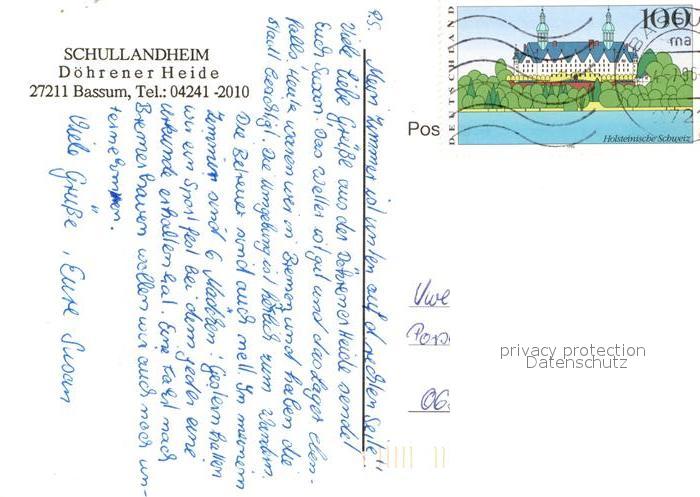 SCHULLANDHEIM
Döhrener Heide
27211 Bassum, Tel.: 04241 -2010
PS. Mein Zimmer ist unten auf d. rechten Seite!!
Viele liebe Grüße aus der Döhrener Heide sendet
Euch Susan. Das Wetter ist gut und das Lager eben-
falls. Heute waren wir in Bremen und haben die
Stadt besichtigt. Die Umgebung ist herrlich zum Wandern.
Die Betreuer sind auch nett. In meinem
Zimmer sind 6 Mädchen! Gestern hatten
wir ein Sportfest bei dem jeder eine
Urkunde erhalten hat. Eine Fahrt nach
Bremerhaven wollen wir auch noch un-
ternehmen.
Viele Grüße, Eure Susan
DEUTSCHLAND
100
Holsteinische Schweiz
Pos
Uwe
06
privacy protection
Datenschutz